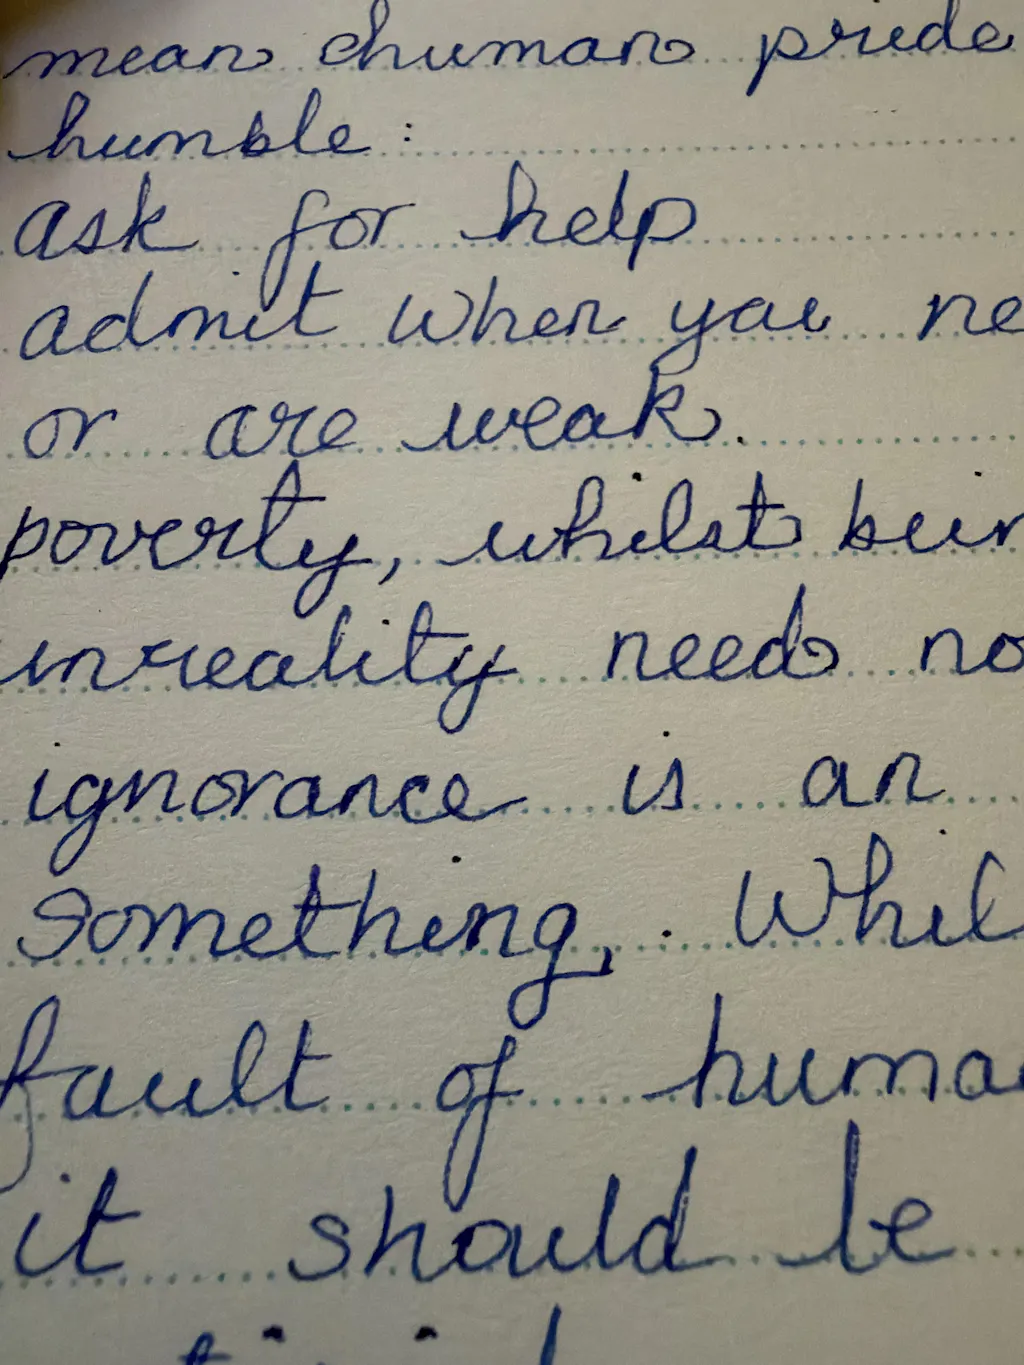 mean human pride
humble:
ask for help
admit when you ne
or are weak.
poverty, whilst bein
inreality need no
ignorance is an
something, . Whil
fault of huma
it should be